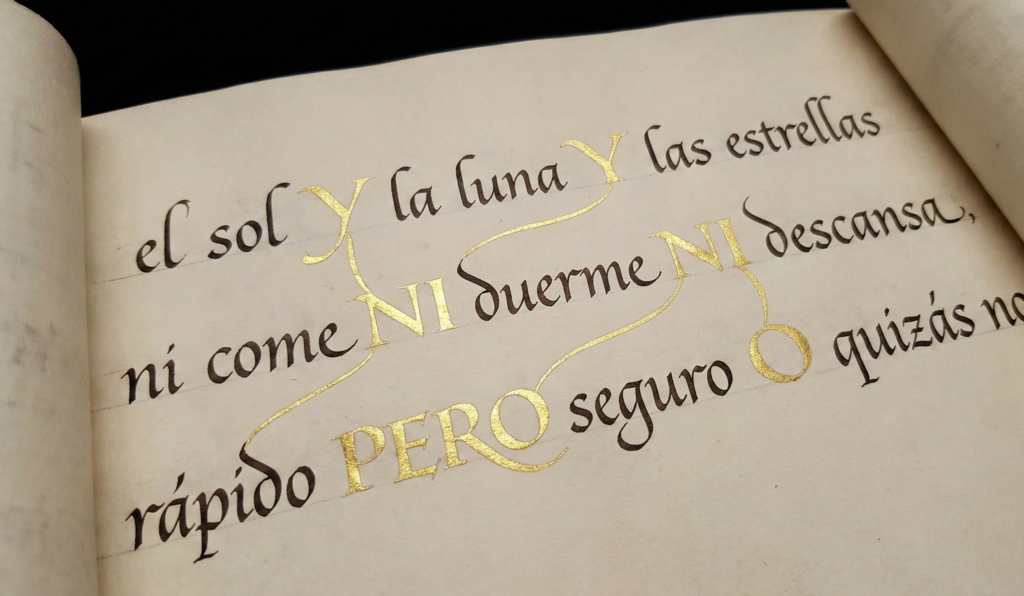 el sol Y la luna Y las estrellas
ni come NI duerme NI descansa,
rápido PERO seguro O quizás no